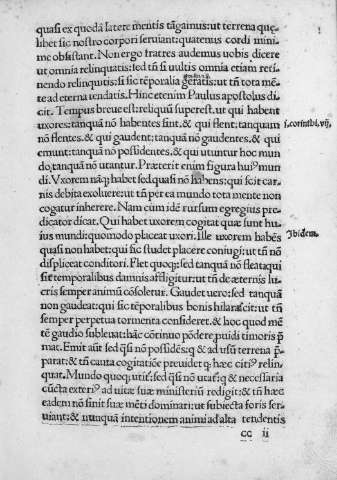 quasi ex quodã latere mentis tãgamus: ut terrena quę-
libet sic nostro corpori seruiant: quatenus cordi mini-
me obsistant. Non ergo fratres audemus uobis dicere
ut omnia relinquatis: sed tñ si uultis omnia etiam reti-
nendo relinquatis: si sic tẽporalia geratis: ut tñ tota mẽ-
te ad eterna tendatis. Hinc etenim Paulus apostolus di-
cit. Tempus breue est: reliquũ superest. ut qui habent
uxores: tanquã nõ habentes sint. & qui flent: tanquam
nõ flentes. & qui gaudent: tanquã nõ gaudentes. & qui
emunt: tanquã nõ possidentes. & qui utuntur hoc mun
do, tanquã nõ utantur. Præterit enim figura hui⁹ mun
di. Vxorem nãq; habet sed quasi nõ habens: qui sic it car-
nis debita exoluere: ut tñ per ea mundo tota mente non
cogatur inherere. Nam cum idẽ rursum egregius pre-
dicator dicat. Qui habet uxorem cogitat quæ sunt hu-
ius mundi: quomodo placeat uxori. Ille uxorem habẽs
quasi non habet: qui sic studet placere coniugi: ut tñ nõ
displiceat conditori. Flet quoq; sed tanquã nõ fleat: qui
sic temporalibus damnis affligitur: ut tñ de æternis lu-
cris semper animũ cõsoletur. Gaudet uero: sed tanquã
non gaudeat: qui sic tẽporalibus bonis hilarescit: ut tñ
semper perpetua tormenta consideret. & hoc quod mẽ
tẽ gaudio subleuat: hãc continuo põdere, puidi timoris p̃
mat. Emit aũt sed q̃si nõ possidẽs: q & ad usũ terrena p̃-
parat: & tñ cauta cogitatiõe preuidet q hæc citi⁹ relin-
quat. Mundo quoq; utit̃: sed q̃si nõ utat̃: q & necessaria
cũcta exteri⁹ ad uitæ suæ ministeriũ redigit: & tñ hæc
eadem nõ sinit suæ mẽti dominari: ut subiecta foris ser-
uiant: & nunquã intentionem animi ad alta tendentis
cc ii
i. corinthi. vij.
Ibidem